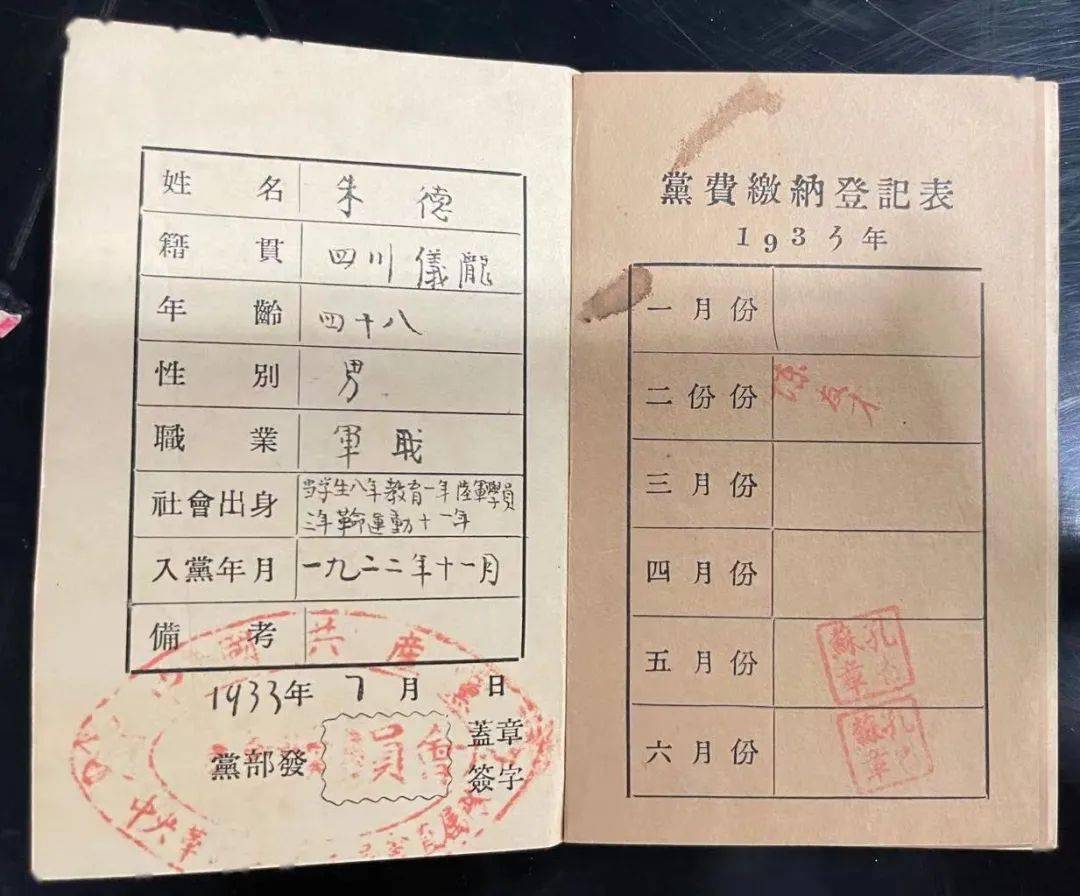 姓名 朱德
籍貫 四川儀隴
年齡 四十八
性別 男
職業 軍戝
社會出身 当学生八年教育一年陸軍學員
三年革命運動十一年
入黨年月 一九二二年十一月
備考
共産
1933年7月 日
黨部發
員
蓋章
簽字
中央革
黨費繳納登記表
193 年
一月份
二份份
三月份
四月份
五月份
孔
蘇章
六月份
孔
蘇章